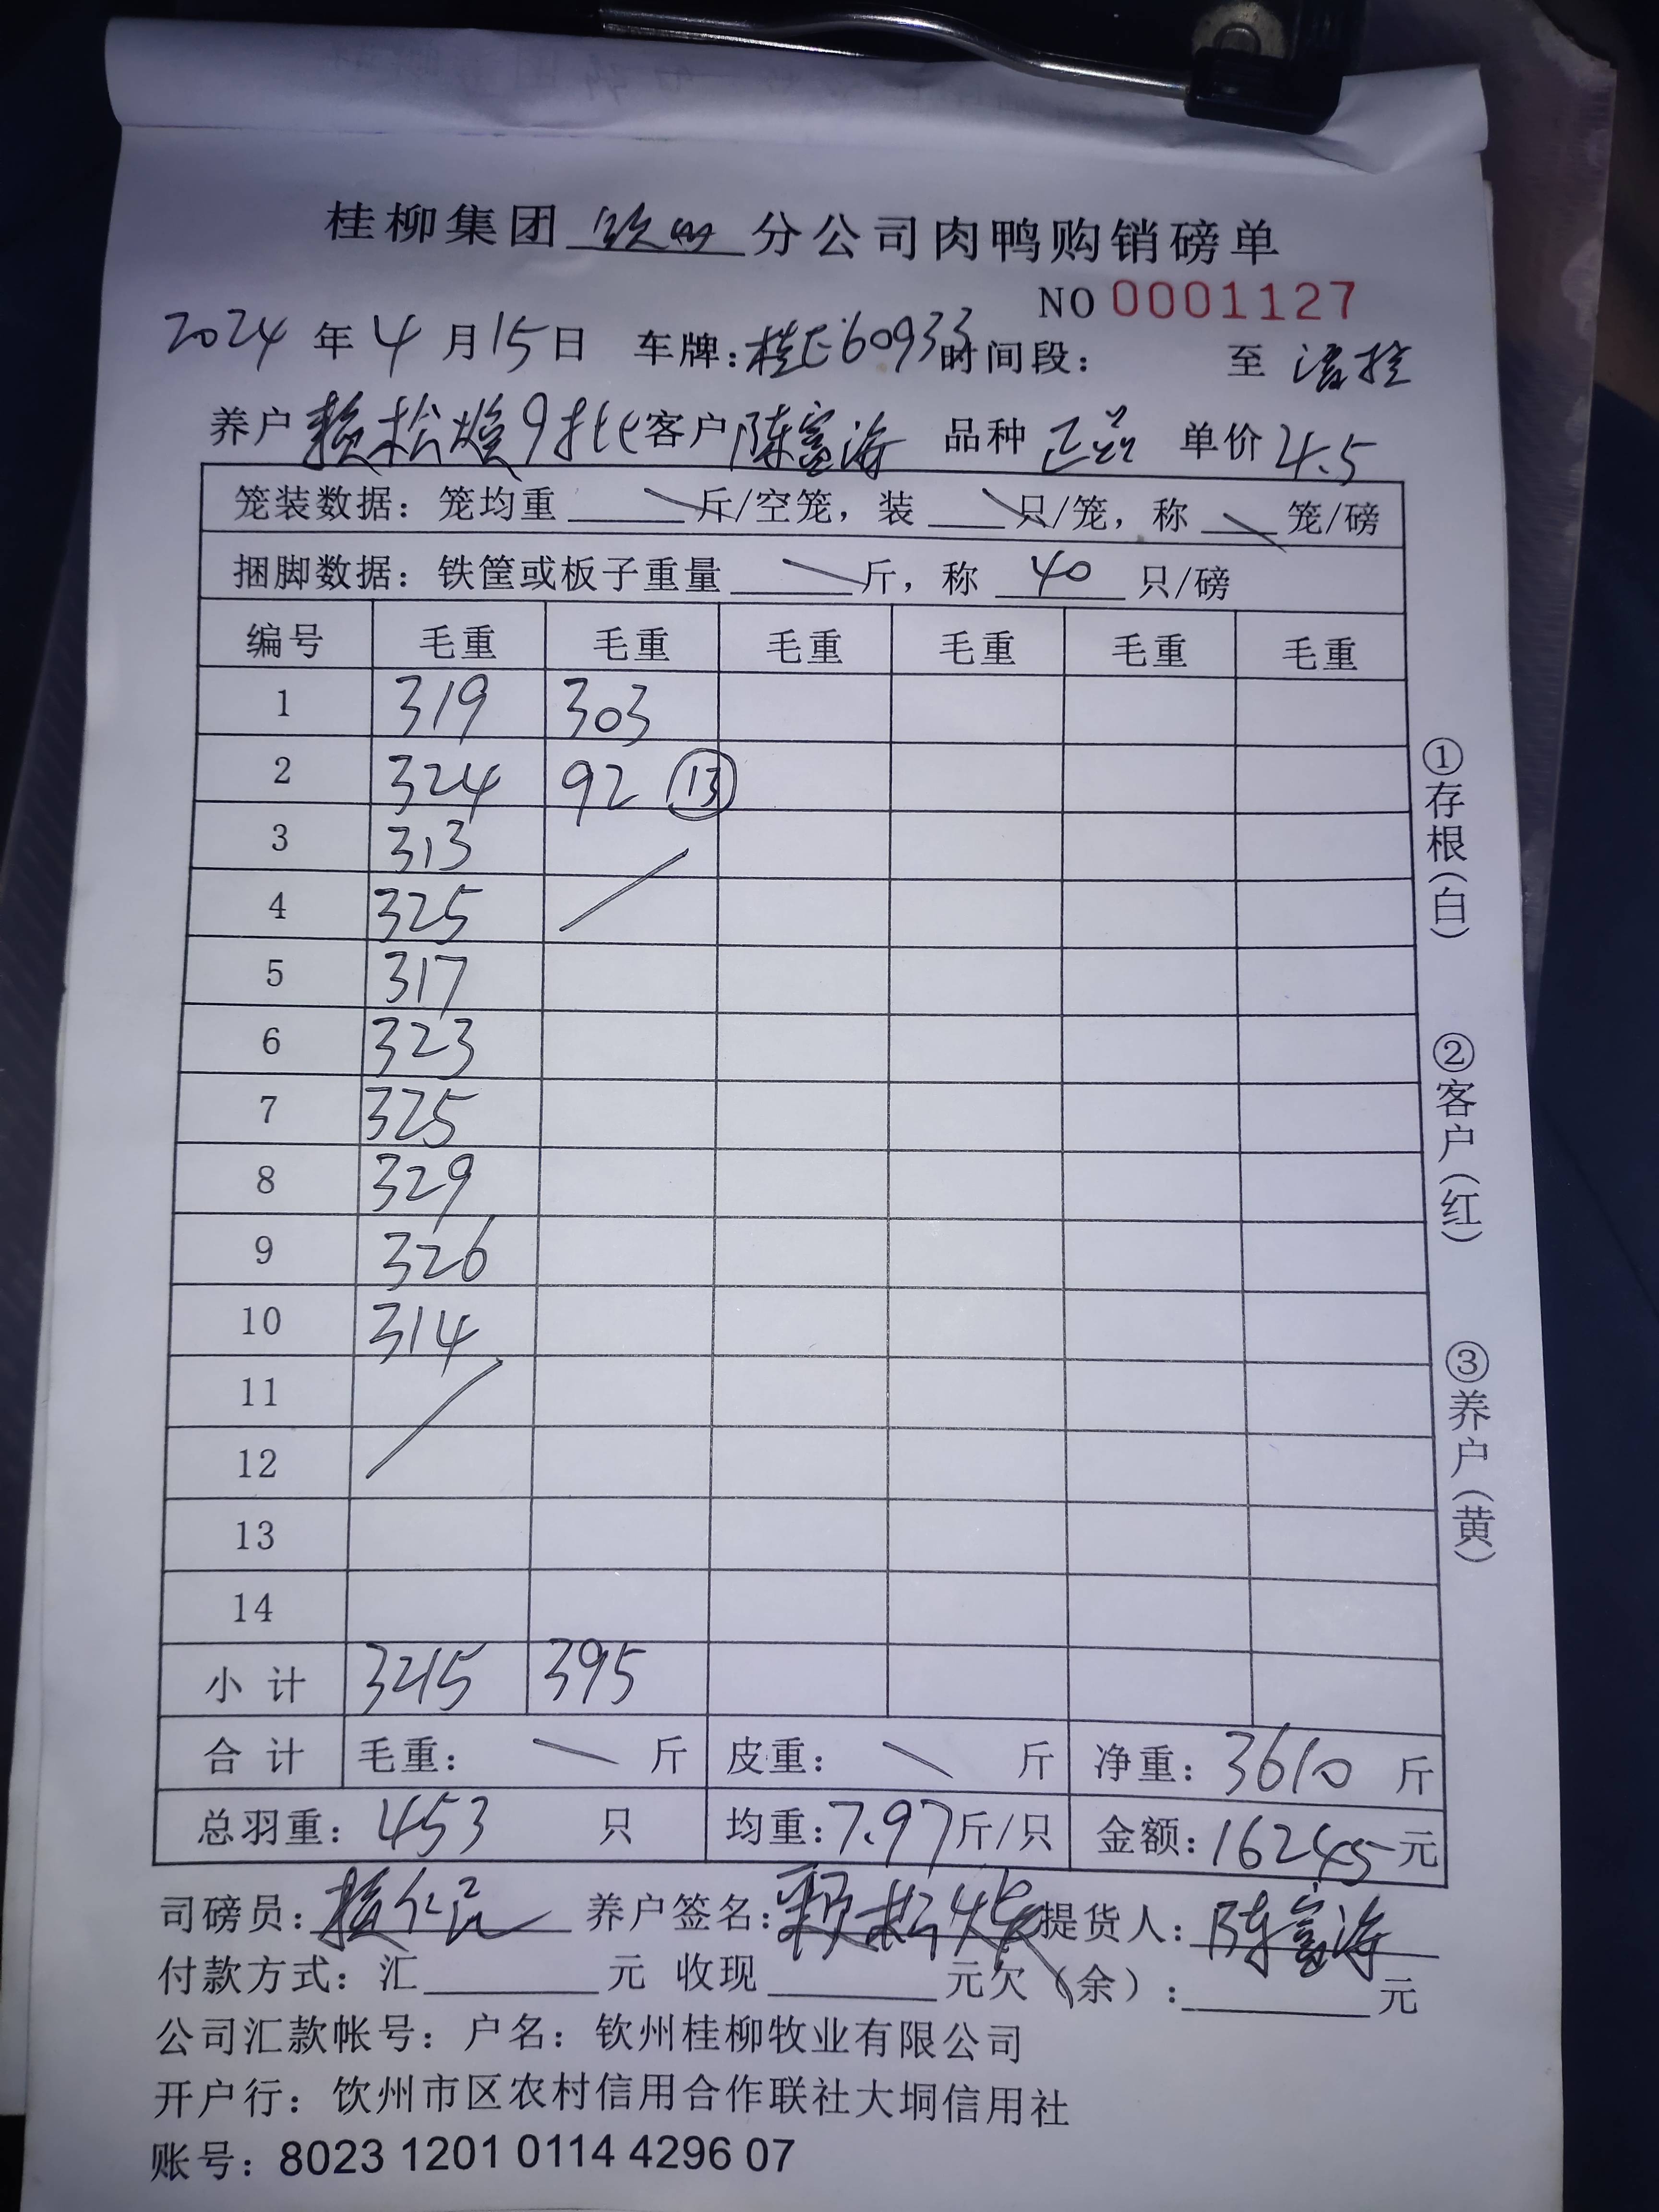 桂柳集团 钦州 分公司肉鸭购销磅单
NO 0001127
2024 年 4 月 15 日 车牌:桂E60933 时间段: 至
养户 赖松焕9批 客户 陈富海 品种 正品 单价 4.5
笼装数据: 笼均重 斤/空笼, 装 只/笼, 称 笼/磅
捆脚数据: 铁筐或板子重量 斤, 称 40 只/磅
编号 毛重 毛重 毛重 毛重 毛重 毛重
1 319 303
2 324 92 ⑬
3 313
4 325
5 317
6 323
7 325
8 329
9 326
10 314
11
12
13
14
小计 3215 395
合计 毛重: 斤 皮重: 斤 净重: 3610 斤
总羽重: 453 只 均重: 7.97 斤/只 金额: 16245 元
司磅员: 养户签名: 赖松焕 提货人: 陈富海
付款方式: 汇 元 收现 元欠(余): 元
公司汇款帐号: 户名: 钦州桂柳牧业有限公司
开户行: 钦州市区农村信用合作联社大垌信用社
账号: 8023 1201 0114 4296 07
①存根(白)
②客户(红)
③养户(黄)